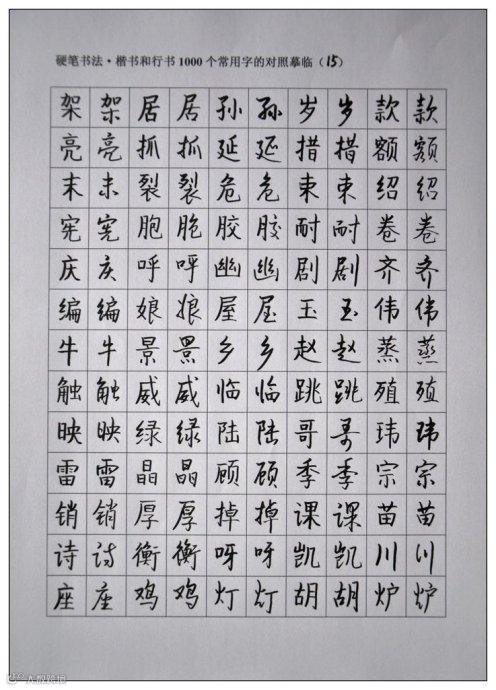 硬笔书法·楷书和行书1000个常用字的对照摹临（15）
架架居居孙孙岁岁款款
亮亮抓抓延延措措额额
末末裂裂危危束束绍绍
宪宪胞胞胶胶耐耐卷卷
庆庆呼呼幽幽剧剧齐齐
编编娘娘屋屋玉玉伟伟
牛牛景景乡乡赵赵蒸蒸
触触威威临临跳跳殖殖
映映绿绿陆陆哥哥玮玮
雷雷晶晶顾顾季季宗宗
销销厚厚掉掉课课苗苗
诗诗衡衡呀呀凯凯川川
座座鸡鸡灯灯胡胡炉炉